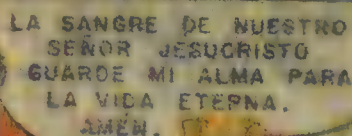 LA SANGRE DE NUESTRO
SEÑOR JESUCRISTO
GUARDE MI ALMA PARA
LA VIDA ETERNA.
AMÉN.